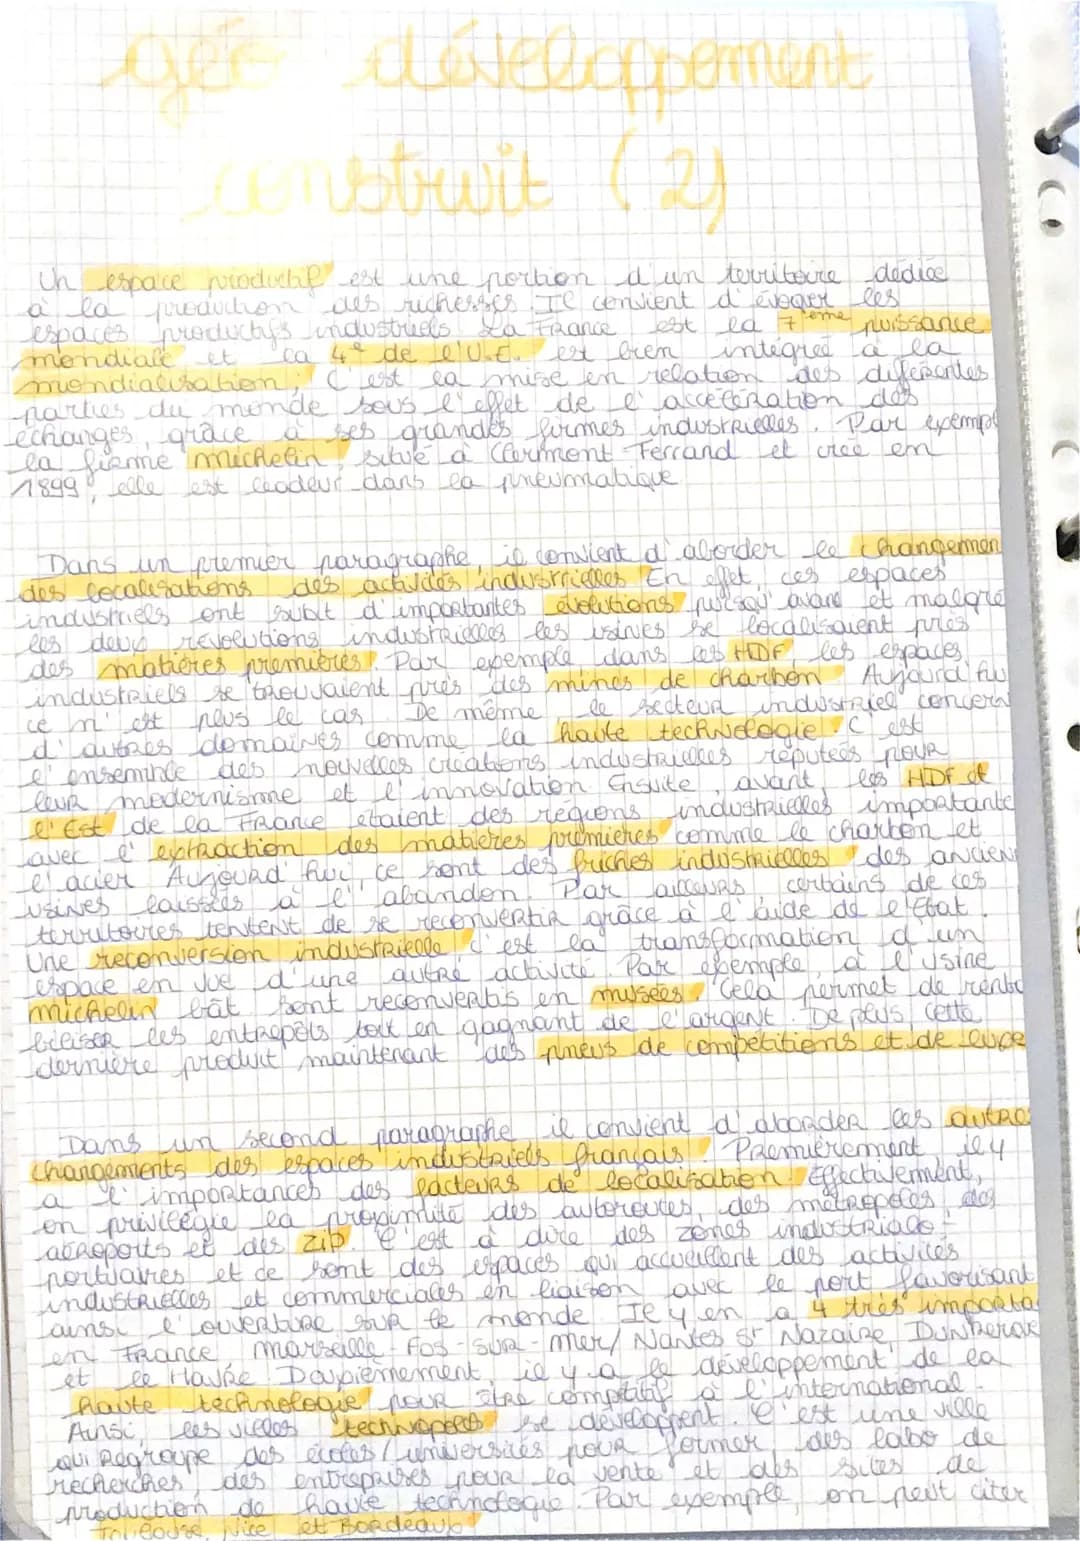 géo développement
construit (2)
Un espace productif est une portion d'un territoire dédiée
à la production des richesses. Il convient d'évoquer les
espaces productifs industriels. La France est la 7ème puissance
mondiale et la 4e de l'U.E. est bien intégrée à la
mondialisation. C'est la mise en relation des diférentes
parties du monde sous l'effet de l'accélération des
échanges, grâce à ses grandes firmes industrielles. Par exempl
la firme michelin, situé à Clermont-Ferrand et créé en
1899, elle est leadeur dans la pneumatique
Dans un premier paragraphe, il convient d'aborder le changemen
des localisations des activités industrielles En effet, ces espaces
industriels ont subit d'importantes évolutions puisqu'avant et malgré
les deux révolutions industrielles les usines se localisaient près
des matières premières. Par exemple, dans les HDF, les espaces
industriels se trouvaient près des mines de charbon Aujourd'hu
ce n'est plus le cas. De même le secteur industriel concern
d'autres domaines comme la haute technologie. C'est
l'ensemble des nouvelles créations industrielles réputées pour
leur modernisme et l'innovation. Ensuite, avant, les HDF et
l'Est de la France étaient des régions industrielles importante
avec l'extraction des matières premières comme le charbon et
l'acier Aujourd'hui, ce sont des friches industrielles des ancien
usines laissées à l'abandon. Par ailleurs certains de ces
territoires tentent de se reconvertir grâce à l'aide de l'Etat.
Une reconversion industrielle c'est la transformation d'un
espace en vue d'une autre activité. Par exemple, à l'usine
michelin bât sont reconvertis en musées. Cela permet de renta
biliser les entrepôts tout en gagnant de l'argent. De plus, cette
dernière produit maintenant des pneus de compétitions et de luxe
Dans un second paragraphe il convient d'aborder les autres
changements des espaces industriels français. Premièrement il y
a l'importances des facteurs de localisation. Effectivement,
on privilégie la proximité des autoroutes, des métropoles, des
aéroports et des zip. C'est à dire des zones industrialo-
portuaires et ce sont des espaces qui accueillent des activités
industrielles et commerciales en liaison avec le port favorisant
ainsi l'ouverture sur le monde Il y en a 4 très importa
en France Marseille-Fos-sur-mer/ Nantes St Nazaire, Dunkerque
et le Havre Deuxièmement, il y a le développement de la
haute technologie pour être compétitif à l'international.
Ainsi, les villes technopoles se développent. C'est une ville
qui regroupe des écoles/universités pour former, des labo de
recherches, des entreprises pour la vente et des sites de
production de haute technologie. Par exemple on peut citer
Toulouse, Nice et Bordeaux